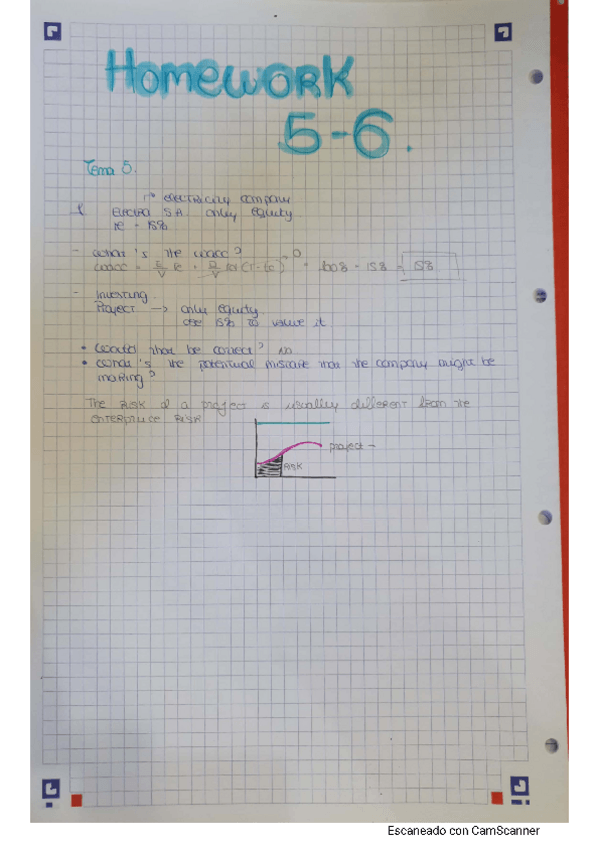 Homework
5-6.
Tema 5.
electricity company
Electra S.A. only equity
re = 15%
- What's the WACC?
WACC = E/V re + D/V rd (1-tc) = 100% · 15% = 15%
0
- Investing
Project → only equity
use 15% to value it
• Would that be correct? no
• What's the potential mistake that the company might be
making?
The risk of a project is usually different from the
enterprise risk
project
Risk
Escaneado con CamScanner